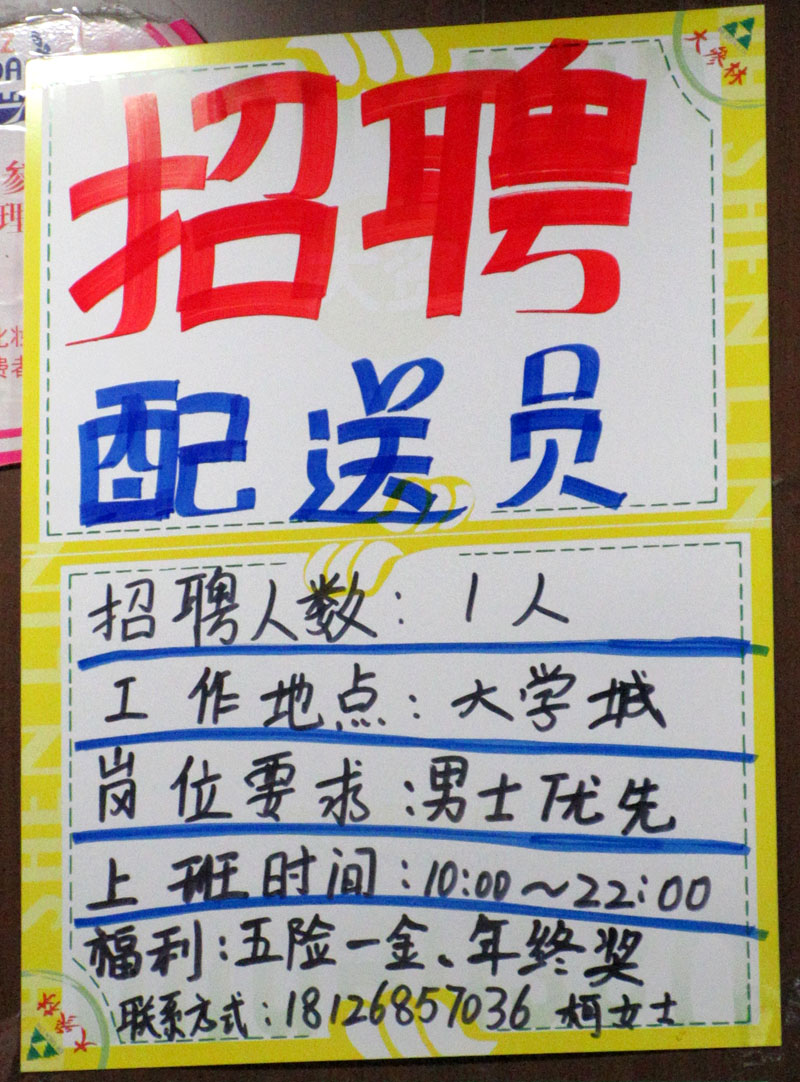 大参林
招聘
配送员
SHEN LIN
招聘人数：1人
工作地点：大学城
岗位要求：男士优先
上班时间：10:00～22:00
福利：五险一金、年终奖
联系方式：18126857036 柯女士
大参林